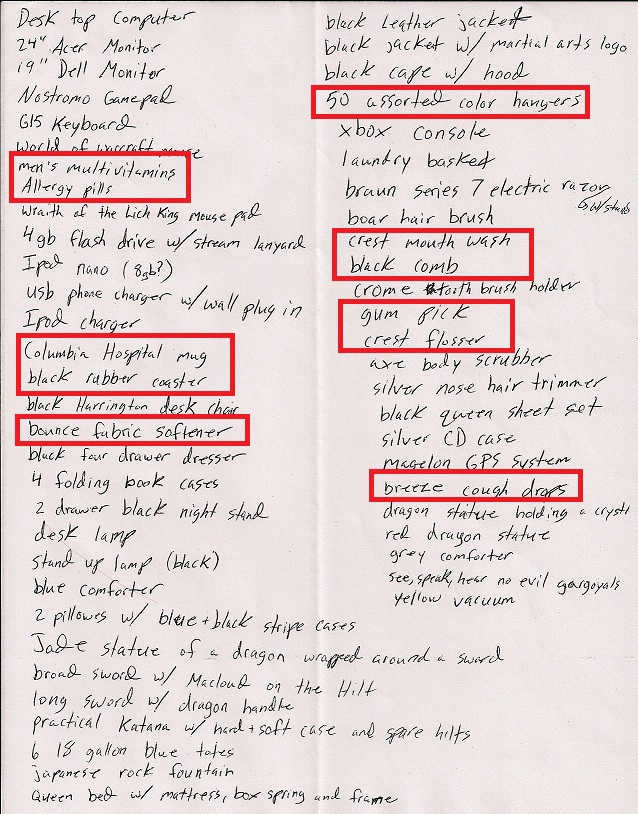 Desk top Computer
24" Acer Monitor
19" Dell Monitor
Nostromo Gamepad
G15 Keyboard
World of warcraft mouse
men's multivitamins
Allergy pills
wraith of the Lich King mouse pad
4gb flash drive w/ stream lanyard
Ipod nano (8gb?)
usb phone charger w/ wall plug in
Ipod charger
Columbia Hospital mug
black rubber coaster
black Harrington desk chair
bounce fabric softener
black four drawer dresser
4 folding book cases
2 drawer black night stand
desk lamp
stand up lamp (black)
blue comforter
2 pillowes w/ blue + black stripe cases
Jade statue of a dragon wrapped around a sword
broad sword w/ Macloud on the Hilt
long sword w/ dragon handle
practical Katana w/ hard + soft case and spare hilts
6 18 gallon blue totes
japanese rock fountain
Queen bed w/ mattress, box spring and frame
black Leather jacket
black jacket w/ martial arts logo
black cape w/ hood
50 assorted color hangers
xbox console
laundry basket
braun series 7 electric razor
w/
boar hair brush
crest mouth wash
black comb
crome tooth brush holder
gum pick
crest flosser
axe body scrubber
silver nose hair trimmer
black queen sheet set
silver CD case
magelon GPS system
breeze cough drops
dragon statue holding a crystl
red dragon statue
grey comforter
see, speak, hear no evil gargoyals
yellow vacuum